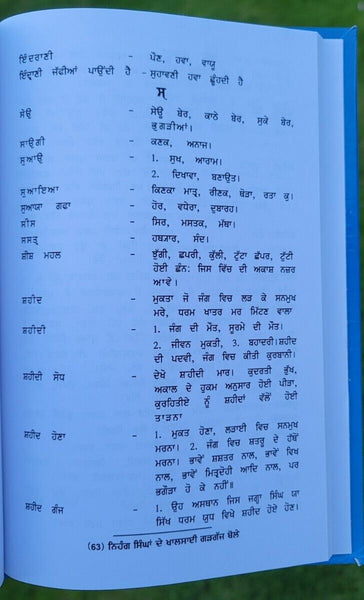 ਇੰਦਰਾਣੀ - ਪੌਣ, ਹਵਾ, ਵਾਯੂ
ਇੰਦ੍ਰਾਣੀ ਜੱਫੀਆਂ ਪਾਉਂਦੀ ਹੈ - ਸੁਹਾਵਣੀ ਹਵਾ ਛੂੰਹਦੀ ਹੈ
ਸ੍
ਸੇਉ - ਸੇਉ ਬੇਰ, ਕਾਠੇ ਬੇਰ, ਸੁਕੇ ਬੇਰ,
ਭੁਗੜੀਆਂ।
ਸਾਉਗੀ - ਕਣਕ, ਅਨਾਜ।
ਸੁਆਉ - 1. ਸੁਖ, ਆਰਾਮ।
2. ਦਿਖਾਵਾ, ਬਣਾਉਤ।
ਸੁਆਇਆ - ਕਿਣਕਾ ਮਾਤ੍ਰ, ਰੀਣਕ, ਥੋੜਾ, ਰਤਾ ਕੁ।
ਸੁਆਯਾ ਗਫਾ - ਹੋਰ, ਵਧੇਰਾ, ਦੁਬਾਰਹ।
ਸੀਸ - ਸਿਰ, ਮਸਤਕ, ਮੱਥਾ।
ਸਸਤ੍ਰ - ਹਥਯਾਰ, ਸੰਦ।
ਸ਼ੀਸ਼ ਮਹਲ - ਝੁੱਗੀ, ਛਪਰੀ, ਕੁੱਲੀ, ਟੁੱਟਾ ਛੱਪਰ, ਟੁੱਟੀ
ਹੋਈ ਛੰਨ: ਜਿਸ ਵਿੱਚ ਦੀ ਅਕਾਸ਼ ਨਜ਼ਰ
ਆਵੇ।
ਸ਼ਹੀਦ - ਮੁਕਤਾ ਜੋ ਜੰਗ ਵਿਚ ਲੜ ਕੇ ਸਨਮੁਖ
ਮਰੇ, ਧਰਮ ਖਾਤਰ ਮਰ ਮਿੱਟਣ ਵਾਲਾ
ਸ਼ਹੀਦੀ - 1. ਜੰਗ ਦੀ ਮੌਤ, ਸੂਰਮੇ ਦੀ ਮੌਤ।
2. ਜੀਵਨ ਮੁਕਤੀ, 3. ਬਹਾਦਰੀ।ਸ਼ਹੀਦ
ਦੀ ਪਦਵੀ, ਜੰਗ ਵਿਚ ਕੀਤੀ ਕੁਰਬਾਨੀ।
ਸ਼ਹੀਦੀ ਸੋਧ - ਦੇਖੋ ਸ਼ਹੀਦੀ ਮਾਰ। ਕੁਦਰਤੀ ਭੁੱਖ,
ਅਕਾਲ ਦੇ ਹੁਕਮ ਅਨੁਸਾਰ ਹੋਈ ਪੀੜਾ,
ਕੁਰਹਿਤੀਏ ਨੂੰ ਸ਼ਹੀਦਾਂ ਵੱਲੋਂ ਹੋਈ
ਤਾੜਨਾ
ਸ਼ਹੀਦ ਹੋਣਾ - 1. ਮੁਕਤ ਹੋਣਾ, ਲੜਾਈ ਵਿਚ ਸਨਮੁਖ
ਮਰਨਾ। 2. ਜੰਗ ਵਿਚ ਸ਼ਤਰੂ ਦੇ ਹੱਥੋਂ
ਮਰਨਾ। ਭਾਵੇਂ ਸ਼ਸ਼ਤਰ ਨਾਲ, ਭਾਵੇਂ ਵਿਖ
ਨਾਲ, ਭਾਵੇਂ ਮਿਤ੍ਰਦੋਹੀ ਆਦਿ ਨਾਲ, ਪਰ
ਭਗੌੜਾ ਹੋ ਕੇ ਨਹੀਂ॥
ਸ਼ਹੀਦ ਗੰਜ - 1. ਉਹ ਅਸਥਾਨ ਜਿਸ ਜਗ੍ਹਾ ਸਿੰਘ ਯਾ
ਸਿੱਖ ਧਰਮ ਯੁਧ ਵਿਖੇ ਸ਼ਹੀਦ ਹੋਏ ਹੋਣ।
(63) ਨਿਹੰਗ ਸਿੰਘਾਂ ਦੇ ਖਾਲਸਾਈ ਗੜਗੱਜ ਬੋਲੇ